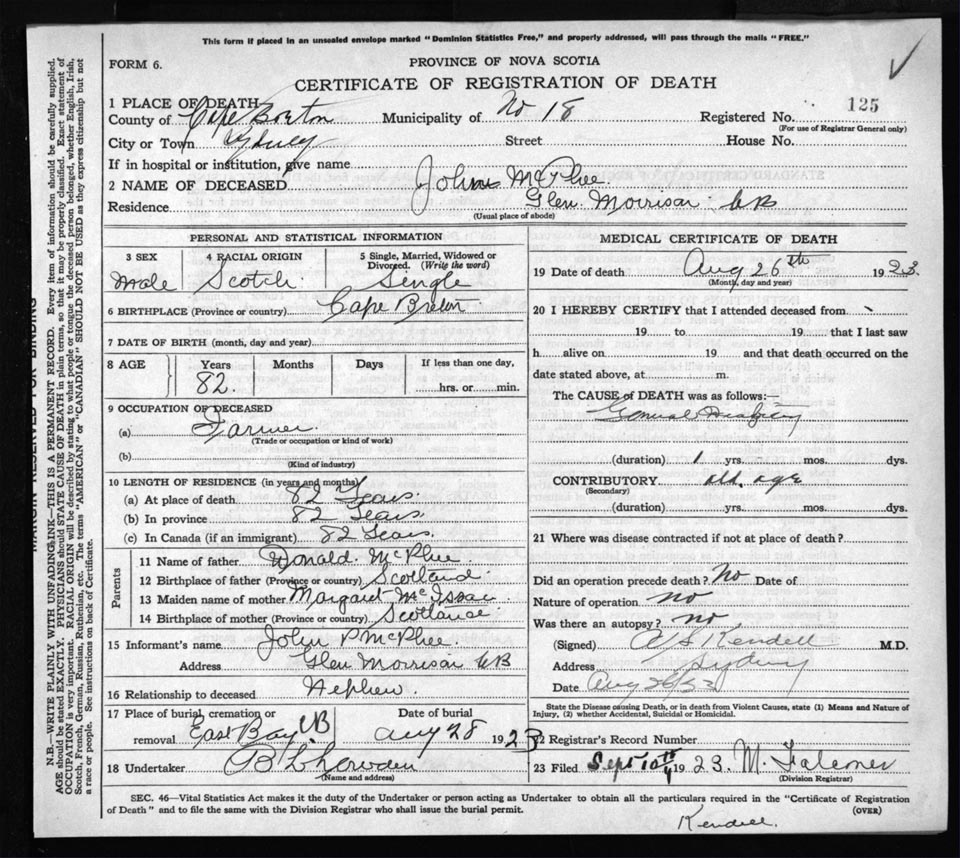 This form if placed in an unsealed envelope marked "Dominion Statistics Free," and properly addressed, will pass through the mails "FREE."
FORM 6.
PROVINCE OF NOVA SCOTIA
CERTIFICATE OF REGISTRATION OF DEATH
1 PLACE OF DEATH
County of Cape Breton Municipality of No 18 Registered No. 125
(For use of Registrar General only)
City or Town Sydney Street House No.
If in hospital or institution, give name
2 NAME OF DECEASED John McPhee.
Residence Glen Morrison CB
(Usual place of abode)
PERSONAL AND STATISTICAL INFORMATION
3 SEX 4 RACIAL ORIGIN 5 Single, Married, Widowed or Divorced. (Write the word)
Male Scotch Single
6 BIRTHPLACE (Province or country) Cape Breton
7 DATE OF BIRTH (month, day and year)
8 AGE Years Months Days If less than one day,
82. hrs. or min.
9 OCCUPATION OF DECEASED
(a) Farmer.
(Trade or occupation or kind of work)
(b)
(Kind of industry)
10 LENGTH OF RESIDENCE (in years and months)
(a) At place of death 82 Years.
(b) In province 82 Years.
(c) In Canada (if an immigrant) 82 Years.
Parents
11 Name of father Donald McPhee.
12 Birthplace of father (Province or country) Scotland
13 Maiden name of mother Margaret McIssac
14 Birthplace of mother (Province or country) Scotland
15 Informant's name John P McPhee
Address Glen Morrison CB
16 Relationship to deceased Nephew.
17 Place of burial, cremation or removal East Bay CB Date of burial Aug 28 1923
18 Undertaker
(Name and address)
MEDICAL CERTIFICATE OF DEATH
19 Date of death Aug 26th 1923.
(Month, day and year)
20 I HEREBY CERTIFY that I attended deceased from
19 to 19 that I last saw
h alive on 19 and that death occurred on the
date stated above, at m.
The CAUSE of DEATH was as follows:
General
(duration) 1 yrs. mos. dys.
CONTRIBUTORY old age
(Secondary)
(duration) yrs. mos. dys.
21 Where was disease contracted if not at place of death?
Did an operation precede death? No Date of
Nature of operation no
Was there an autopsy? no
(Signed) A S Kendell M.D.
Address Sydney
Date Aug 26/23
State the Disease causing Death, or in death from Violent Causes, state (1) Means and Nature of
Injury, (2) whether Accidental, Suicidal or Homicidal.
22 Registrar's Record Number
23 Filed Sept 10th 1923. M. Falconer
(Division Registrar)
SEC. 46—Vital Statistics Act makes it the duty of the Undertaker or person acting as Undertaker to obtain all the particulars required in the "Certificate of Registration
of Death" and to file the same with the Division Registrar who shall issue the burial permit. (OVER)
Kendell.
MARGIN RESERVED FOR BINDING
N.B.—WRITE PLAINLY WITH UNFADING INK—THIS IS A PERMANENT RECORD. Every item of information should be carefully supplied.
AGE should be stated EXACTLY. PHYSICIANS should STATE CAUSE OF DEATH in plain terms, so that it may be properly classified. Exact statement of
OCCUPATION is very important. RACIAL ORIGIN will be described by stating to what people or tongue the deceased person belonged, whether English, Irish,
Scotch, French, German, Russian, Ruthenian, etc. The terms "AMERICAN" or "CANADIAN" SHOULD NOT BE USED as they express citizenship but not
a race or people. See instructions on back of Certificate.